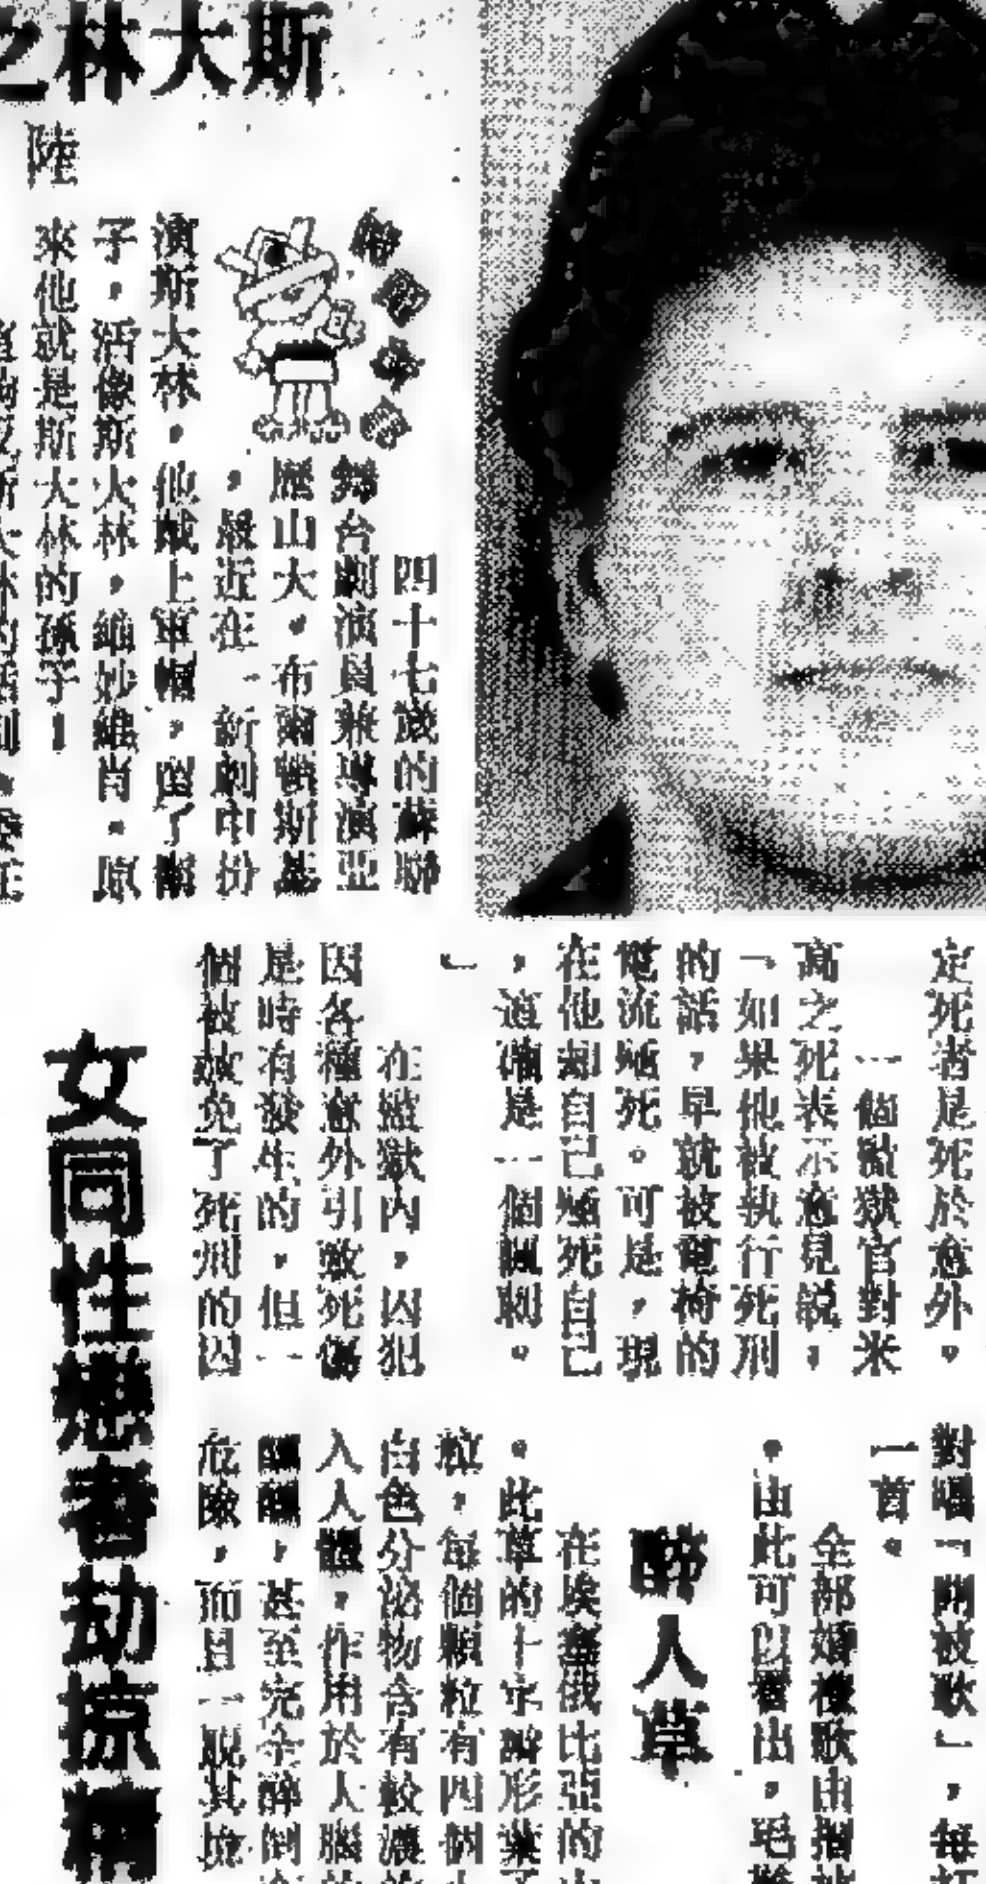 斯大林之
陸
四十七歲的蘇聯
舞台劇演員兼導演亞
歷山大·布爾頓斯基
，最近在一新劇中扮
演斯大林，他戴上軍帽，留了鬍
子，活像斯大林，維妙維肖。原
來他就是斯大林的孫子！
定死者是死於意外。
一個監獄官對米
高之死表示意見說，
「如果他被執行死刑
的話，早就被電椅的
電流殛死。可是，現
在他却自己殛死自己
，這確是一個諷刺。
」
在監獄內，囚犯
因各種意外引致死傷
是時有發生的，但一
個被赦免了死刑的囚
女同性戀者劫掠
對唱「開被歌」，每
一首。
全部婚禮歌由摺被
。由此可以看出，毛
醉人草
在埃塞俄比亞的
。此草的十字瓣形葉子
粒，每個顆粒有四個
白色分泌物含有較濃的
入人體，作用於大腦的
醺醺，甚至完全醉倒
危險，而且一脫其